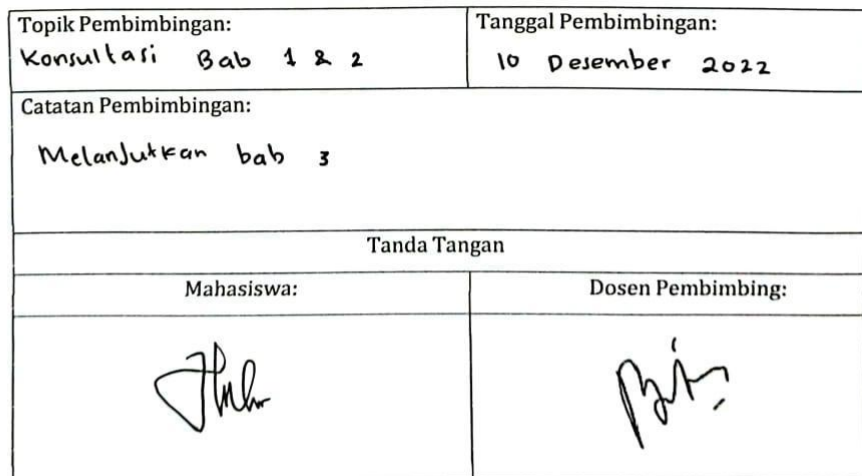 Topik Pembimbingan:
Konsultasi Bab 1 & 2
Tanggal Pembimbingan:
10 Desember 2022
Catatan Pembimbingan:
Melanjutkan bab 3
Tanda Tangan
Mahasiswa:
Dosen Pembimbing: